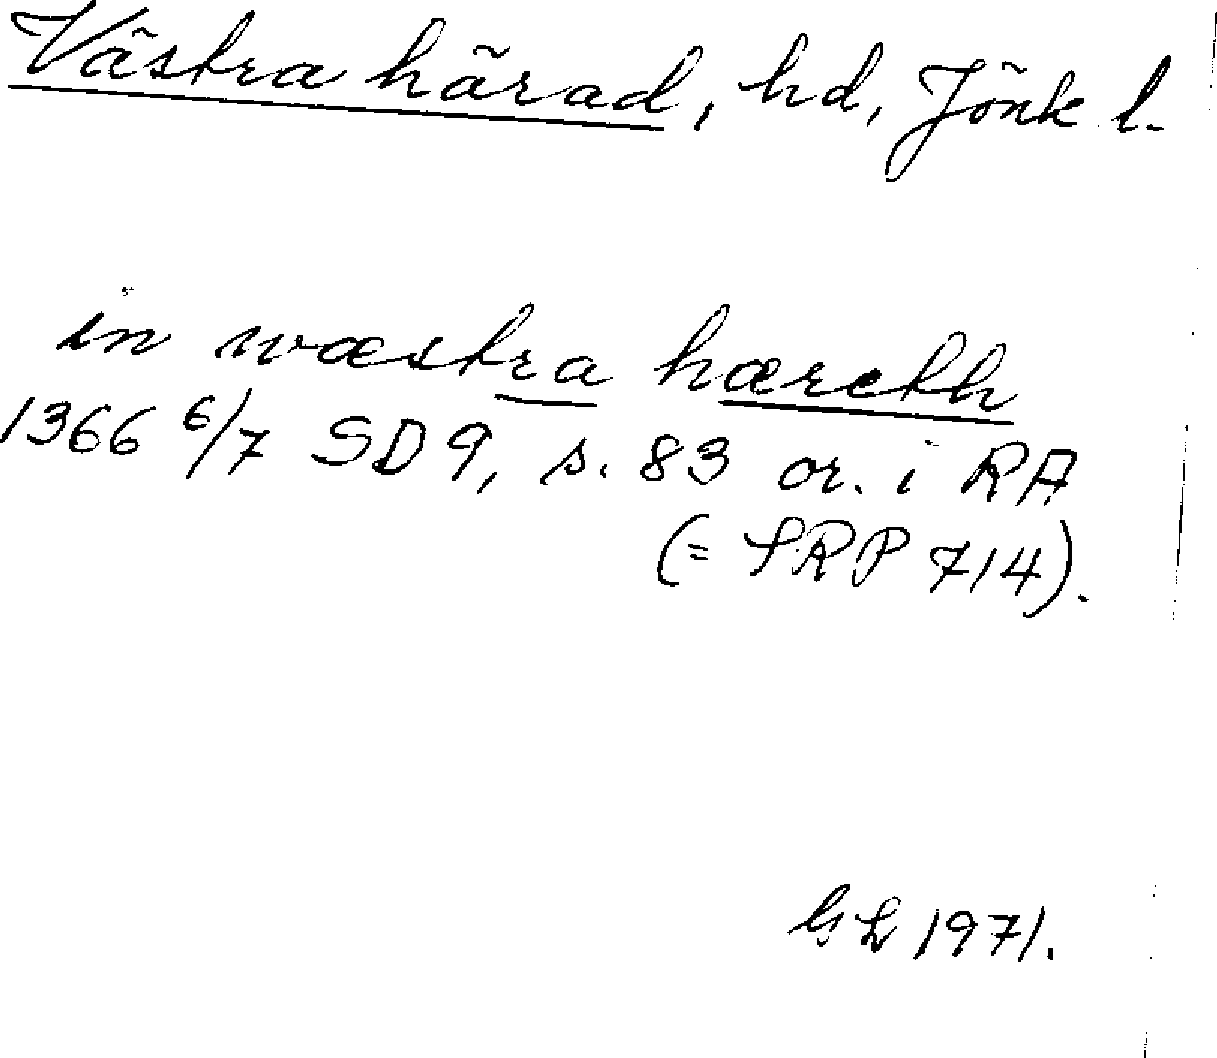 Västra härad, hd, Jönk l.
in wæstra hærekh
1366 6/7 SD 9, s. 83 or. i RA
(= SRP 714).
GL 1971.